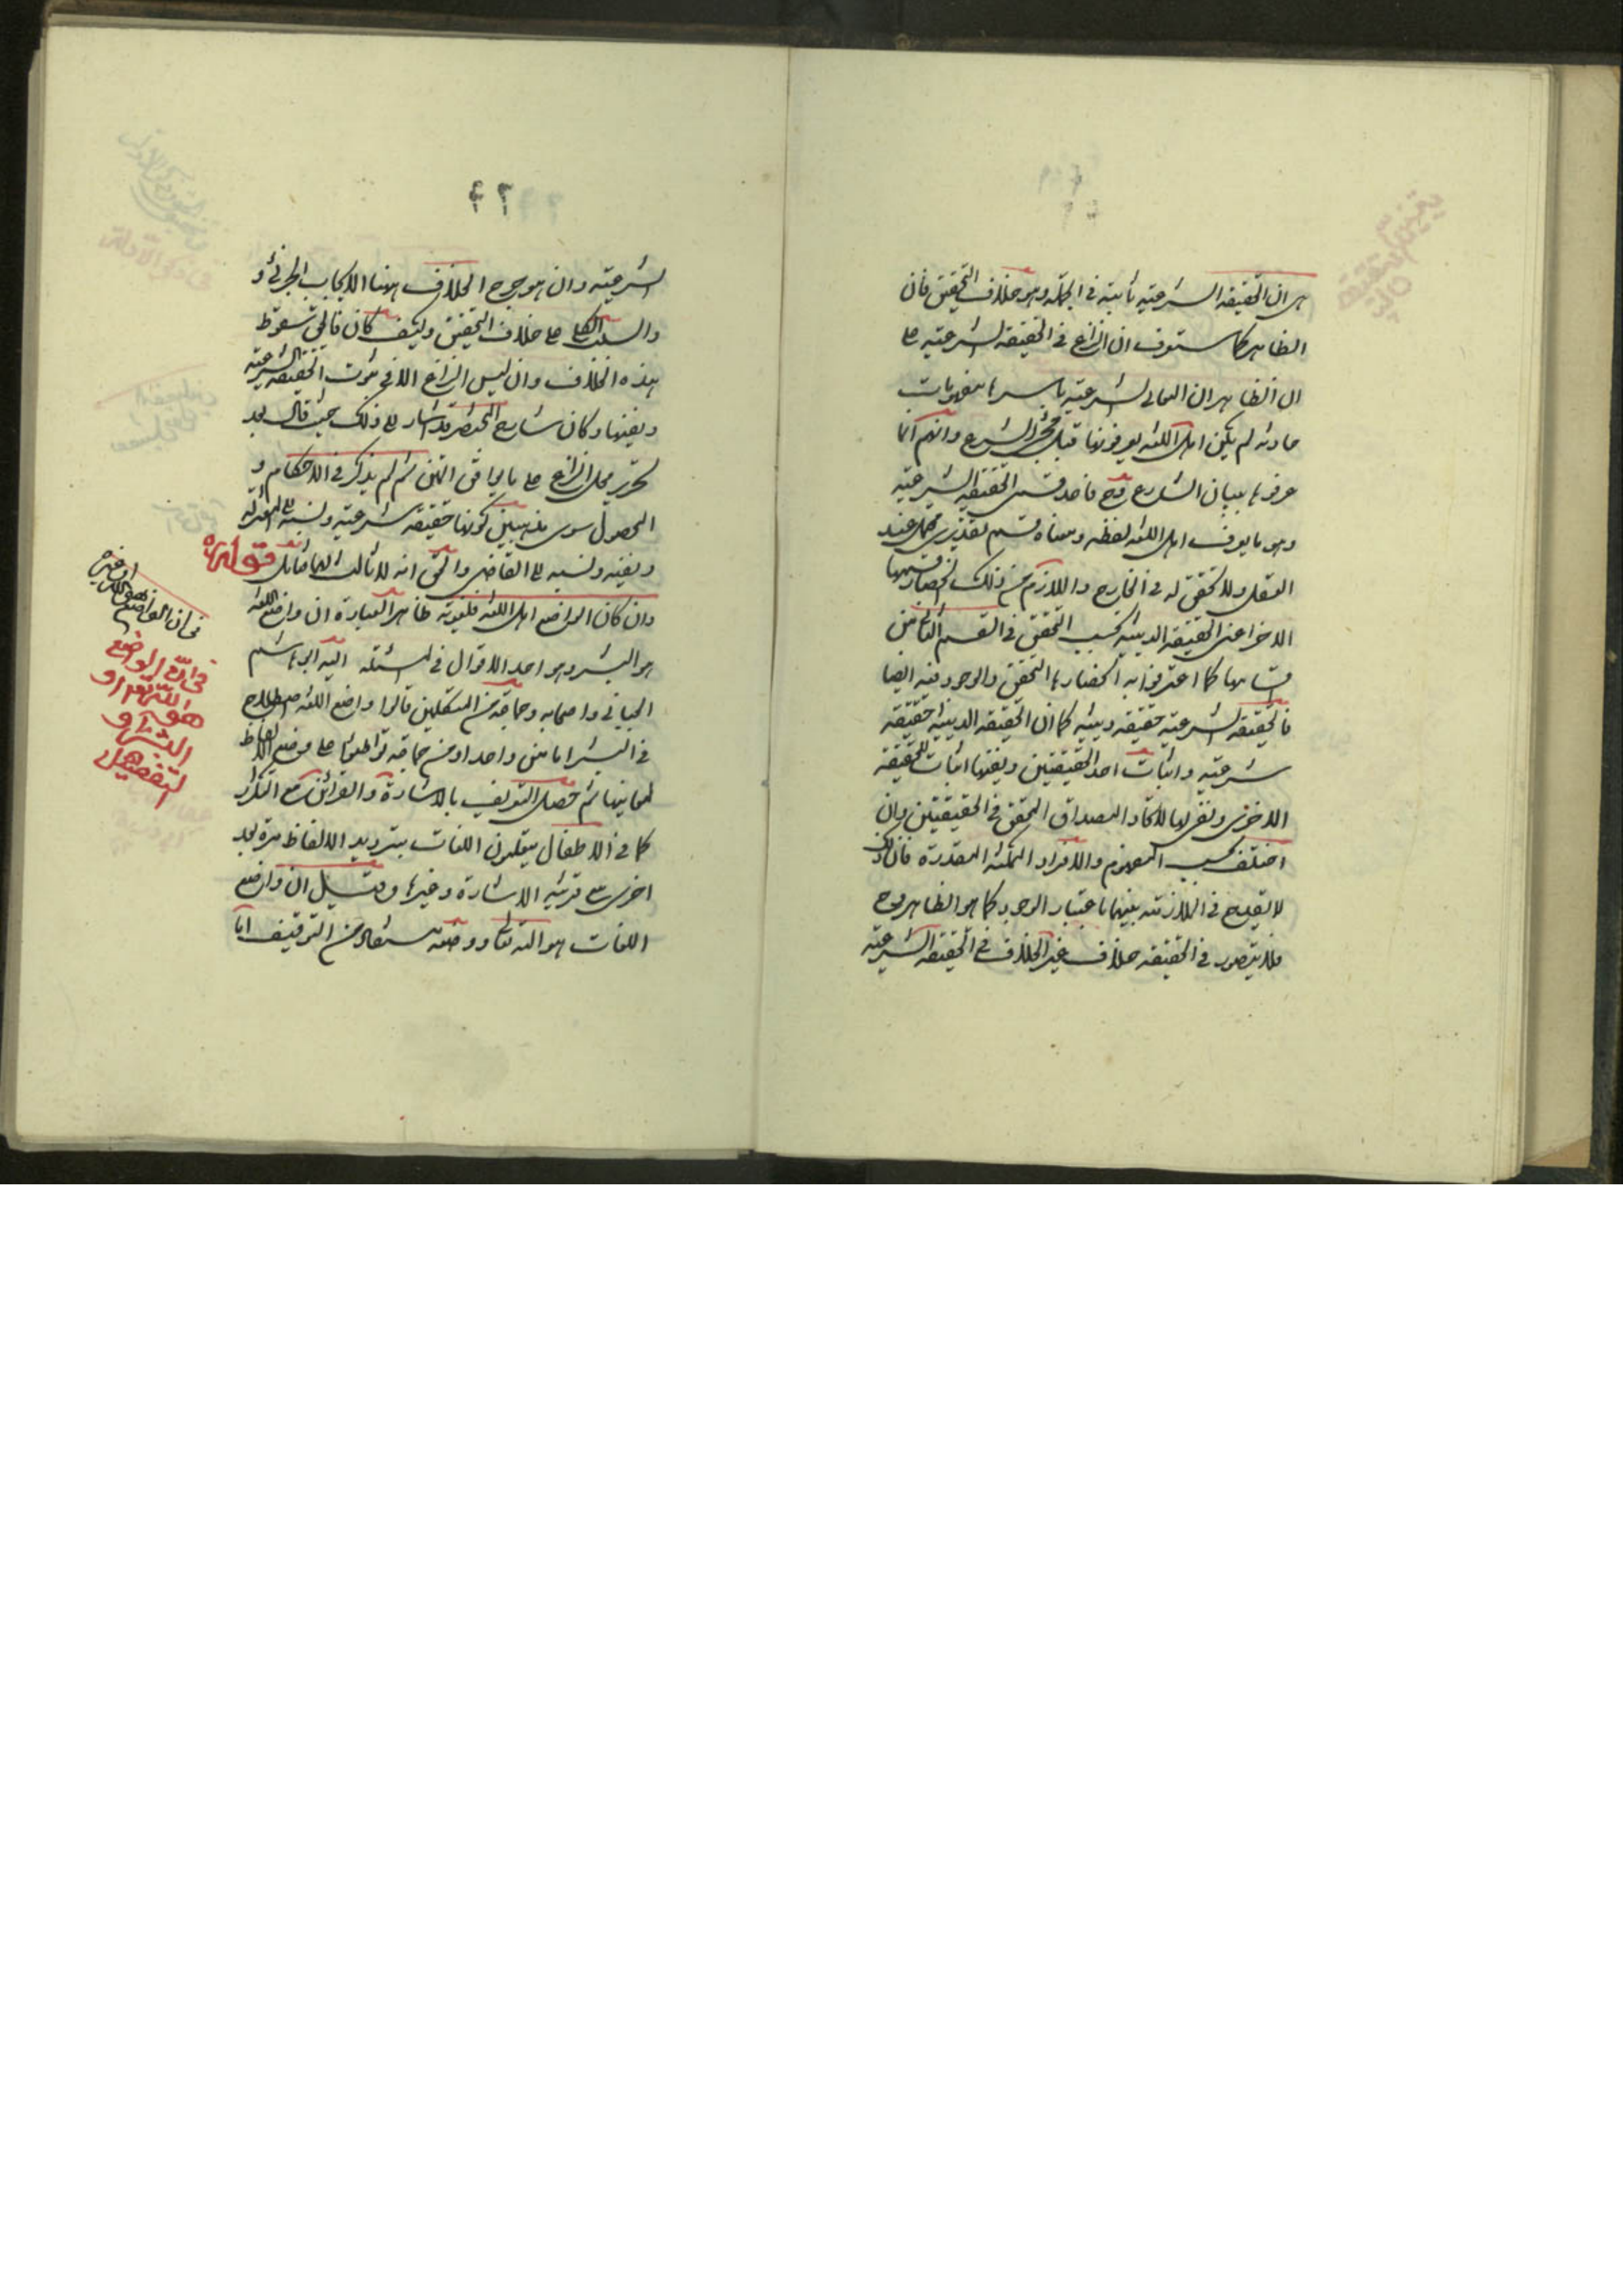 هر ان الحقيقة الشرعية ثابتة في الجملة وهو خلاف التحقيق فان
الظاهر كما ستعرف ان النزاع في الحقيقة الشرعية على
ان الظاهر ان المعاني الشرعية باسرها مفهومات
حادثة لم يكن اهل اللغة يعرفونها قبل الشرع وانهم انما
عرفوها ببيان الشارع وح فاحد قسمي الحقيقة الشرعية
وهو ما يعرف اهل اللغة لفظه ومعناه قسم تقديري محض عند
العقل ولا تحقق له في الخارج واللازم من ذلك انحصار قسمها
الاخر اعني الحقيقة الدينية بحسب التحقق في القسم الثاني من
قسامها كما اعترفوا به انحصارها التحقق والوجود فيه ايضا
فالحقيقة الشرعية حقيقة دينية كما ان الحقيقة الدينية حقيقة
شرعية واثبات احد الحقيقتين ونفيها اثبات للحقيقة
الاخرى ونفي لها لاتحاد المصداق المحقق في الحقيقتين وان
اختلف بحسب المفهوم والافراد الممكنة المقدرة فان ذلك
لا يقدح في الملازمة بينهما باعتبار الوجود كما هو الظاهر وح
فلا يتصور في الحقيقة خلاف غير الخلاف في الحقيقة الشرعية
٢٢
الشرعية وان هو جرح الخلاف ههنا الايجاب الجزئي و
والسلب الكلي على خلاف التحقيق وكيف كان فالحق سقوط
هذه الخلاف وان ليس النزاع الا في ثبوت الحقيقة الشرعية
ونفيها وكان شارح المختصر قد اشار الى ذلك حيث قال بعد
تحرير محل النزاع على ما يوافق المتن ثم لم يذكر في الاحكام و
المحصول سوى مذهبين كونها حقيقة شرعية ونسبه الى المعتزلة
ونفيه ونسبه الى القاضي والحق انه لا ثالث لهما فتأمل قوله
وان كان الواضع اهل اللغة فلغوية ظاهر العبارة ان واضع اللغة
هو البشر وهو احد الاقوال في المسئلة اليه ابو هاشم
الجبائي واصحابه وجماعة من المتكلمين قالوا واضع اللغة اصطلاح
في البشر اما من واحد او من جماعة تواطئوا على وضع الالفاظ
لمعانيها ثم حصل التعريف بالاشارة والقرائن مع التكرار
كما في الاطفال يتعلمون اللغات بترديد الالفاظ مرة بعد
اخرى مع قرينة الاشارة وغيرها وقيل ان واضع
اللغات هو الله تعالى ووضعه مستفاد من التوقيف اما
في ان الواضع هو الله او غيره
في ان الواضع
هو الله تعالى او
البشر او
التفصيل